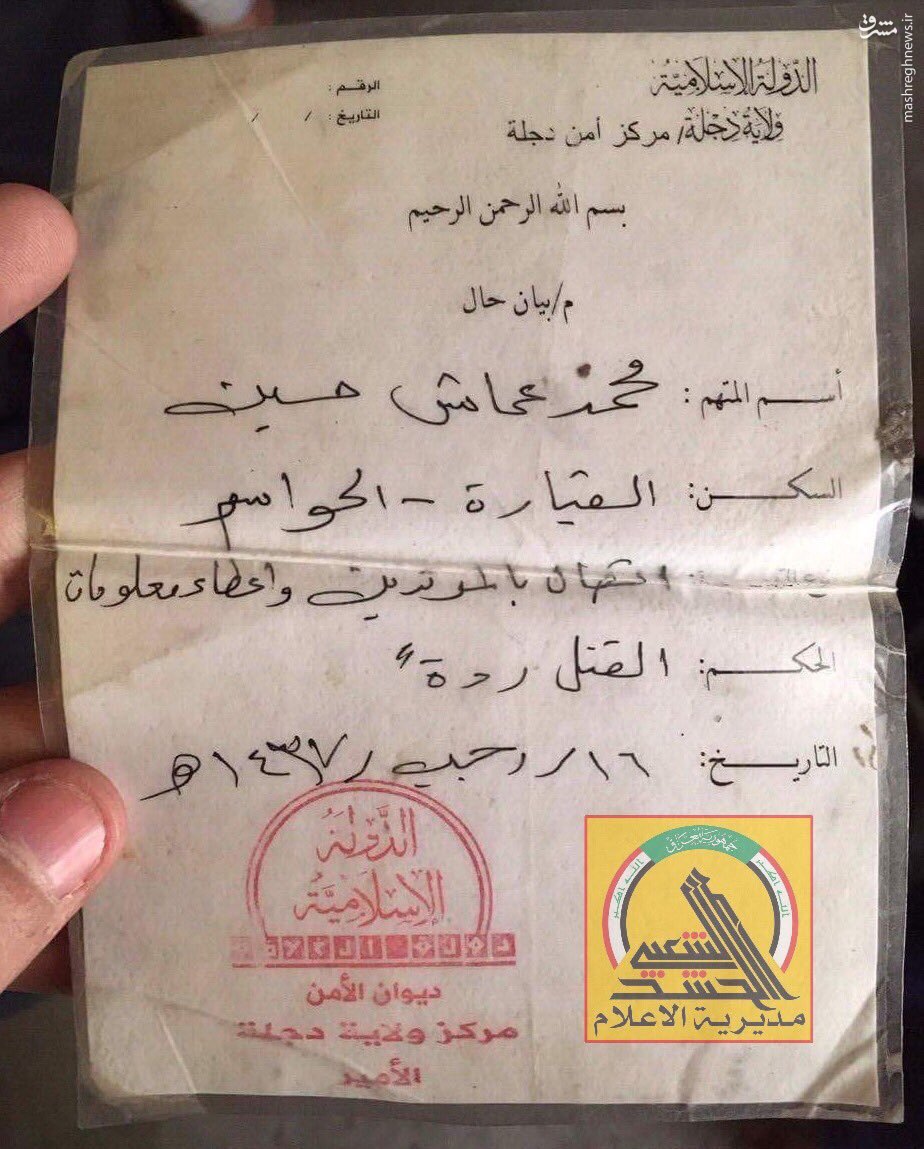 مشرق
mashreghnews.ir
الدولة الإسلامية
ولاية دجلة/ مركز أمن دجلة
الرقم :
التاريخ : / /
بسم الله الرحمن الرحيم
م/بيان حال
أسم المتهم : محمد عماش حسين
السكن: القيارة - الحواسم
بالمرتدين واعطاء معلومات
الحكم: القتل ردةً
التاريخ: ١٦/رجب/١٤٣٧هـ
الدولة
الإسلامية
ديوان الأمن
مركز ولاية دجلة
الأمير
جمهورية العراق
الله اكبر
الله اكبر
الحشد الشعبي
مديرية الاعلام